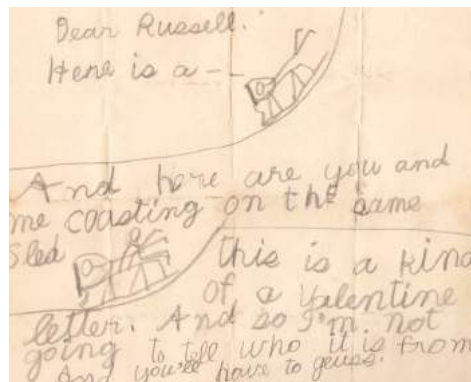 Dear Russell.
Here is a - -
And here are you and
me coasting on the same
Sled
this is a kind
of a Valentine
letter. And so I'm. not
going to tell who it is from
And you'll have to geuss.